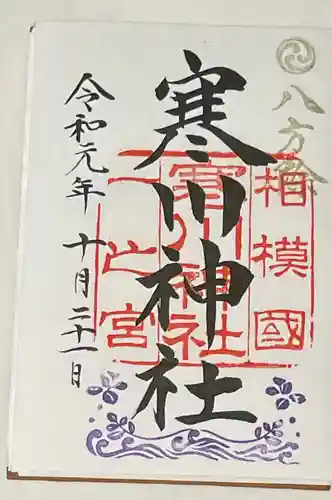 八方除
相模國
寒川神社
寒川神社
一之宮
令和元年 十月二十一日